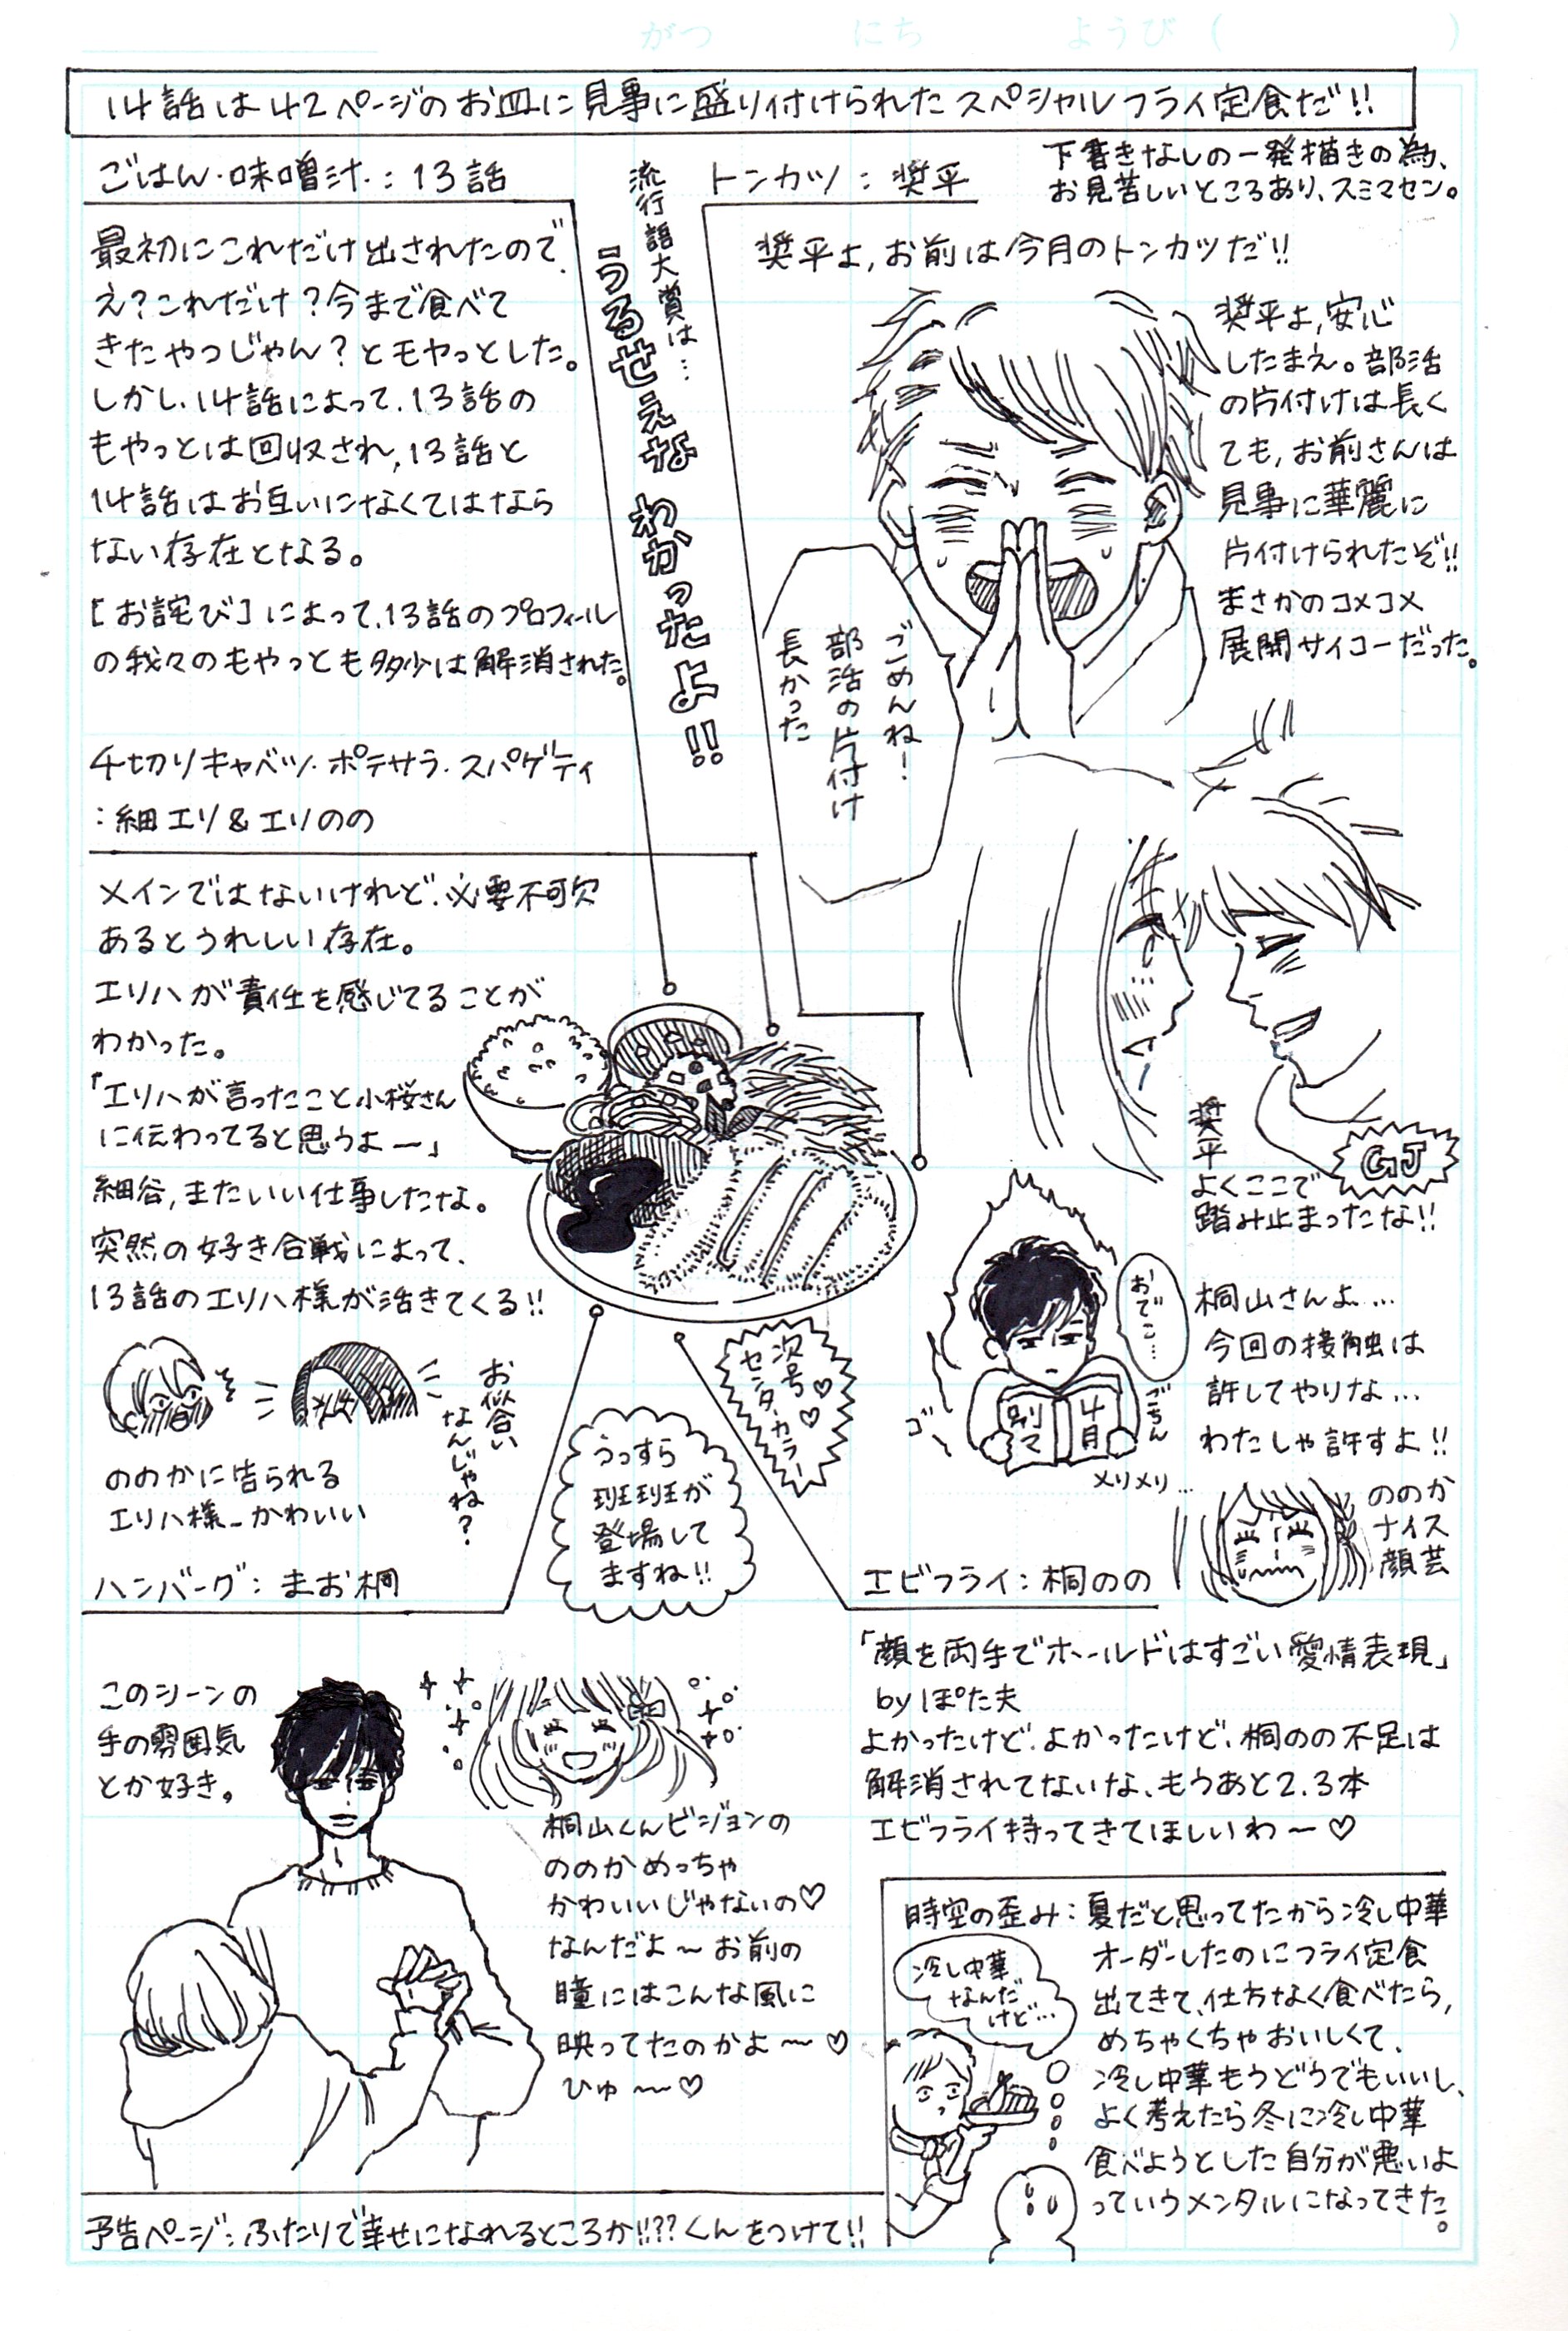 がつ にち ようび ( )
14話は42ページのお皿に見事に盛り付けられたスペシャルフライ定食だ!!
下書きなしの一発描きの為、
お見苦しいところあり、スミマセン。
ごはん・味噌汁・:13話
最初にこれだけ出されたので、
え?これだけ?今まで食べて
きたやつじゃん?とモヤっとした。
しかし、14話によって、13話の
もやっとは回収され、13話と
14話はお互いになくてはなら
ない存在となる。
[お詫び]によって、13話のプロフィール
の我々のもやっとも多少は解消された。
流行語大賞は…
うるせえな わかったよ!!
トンカツ:奨平
奨平よ、お前は今月のトンカツだ!!
奨平よ、安心
したまえ。部活
の片付けは長く
ても、お前さんは
見事に華麗に
片付けられたぞ!!
まさかのコメコメ
展開サイコーだった。
ごめんね!
部活の片付け
長かった
奨平
よくここで
踏み止まったな!!
GJ
千切りキャベツ・ポテサラ・スパゲティ
:細エリ&エリのの
メインではないけれど、必要不可欠
あるとうれしい存在。
エリハが責任を感じてることが
わかった。
「エリハが言ったこと小桜さん
に伝わってると思うよー」
細谷、またいい仕事したな。
突然の好き合戦によって、
13話のエリハ様が活きてくる!!
お似合い
なんじゃね?
ののかに告られる
エリハ様、かわいい
おでこ…
ごちん
ゴ
別マ
4月
メリメリ…
桐山さんよ…
今回の接触は
許してやりな…
わたしゃ許すよ!!
ののか
ナイス
顔芸
次号♡
センターカラー♡
うっすら
班班が
登場して
ますね!!
ハンバーグ:まお桐
このシーンの
手の雰囲気
とか好き。
桐山くんビジョンの
ののかめっちゃ
かわいいじゃないの♡
なんだよ〜お前の
瞳にはこんな風に
映ってたのかよ〜♡
ひゅ〜♡
エビフライ:桐のの
「顔を両手でホールドはすごい愛情表現」
byぽた夫
よかったけど、よかったけど、桐のの不足は
解消されてないな、もうあと2.3本
エビフライ持ってきてほしいわ〜♡
時空の歪み:夏だと思ってたから冷し中華
オーダーしたのにフライ定食
出てきて、仕方なく食べたら、
めちゃくちゃおいしくて、
冷し中華もうどうでもいいし、
よく考えたら冬に冷し中華
食べようとした自分が悪いよ
っていうメンタルになってきた。
冷し中華
なんだ
けど…
予告ページ:ふたりで幸せになれるところか!!??くんをつけて!!